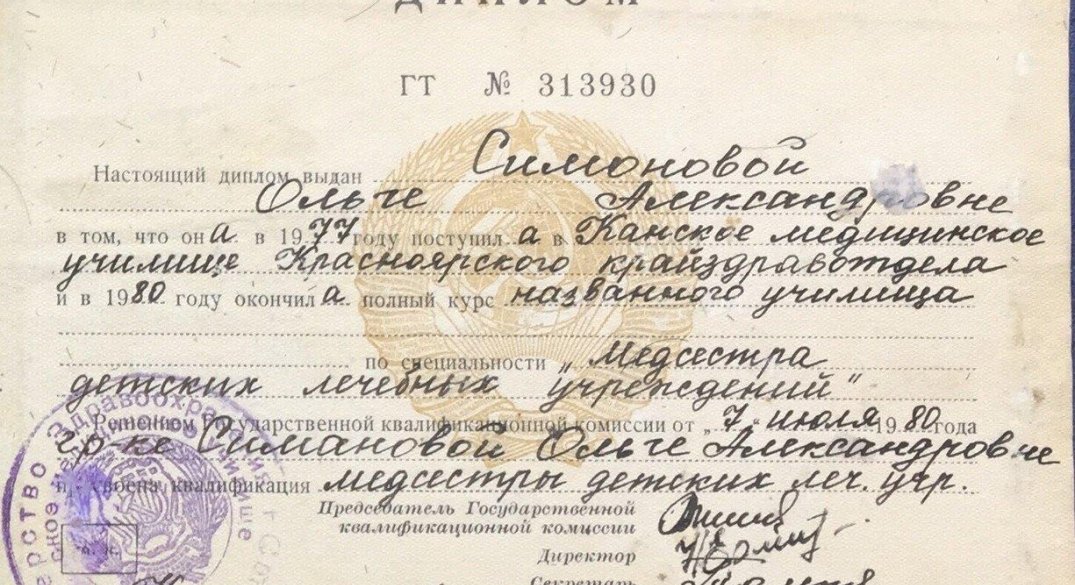 ДИПЛОМ
ГТ № 313930
Настоящий диплом выдан Симоновой
Ольге Александровне
в том, что она в 1977 году поступила в Канское медицинское
училище Красноярского крайздравотдела
и в 1980 году окончила полный курс названного училища
по специальности „Медсестра
детских лечебных учреждений"
Решением Государственной квалификационной комиссии от „7" июля 1980 года
гр-ке Симановой Ольге Александровне
присвоена квалификация медсестры детских леч. учр.
Председатель Государственной
квалификационной комиссии
Директор
Секретарь